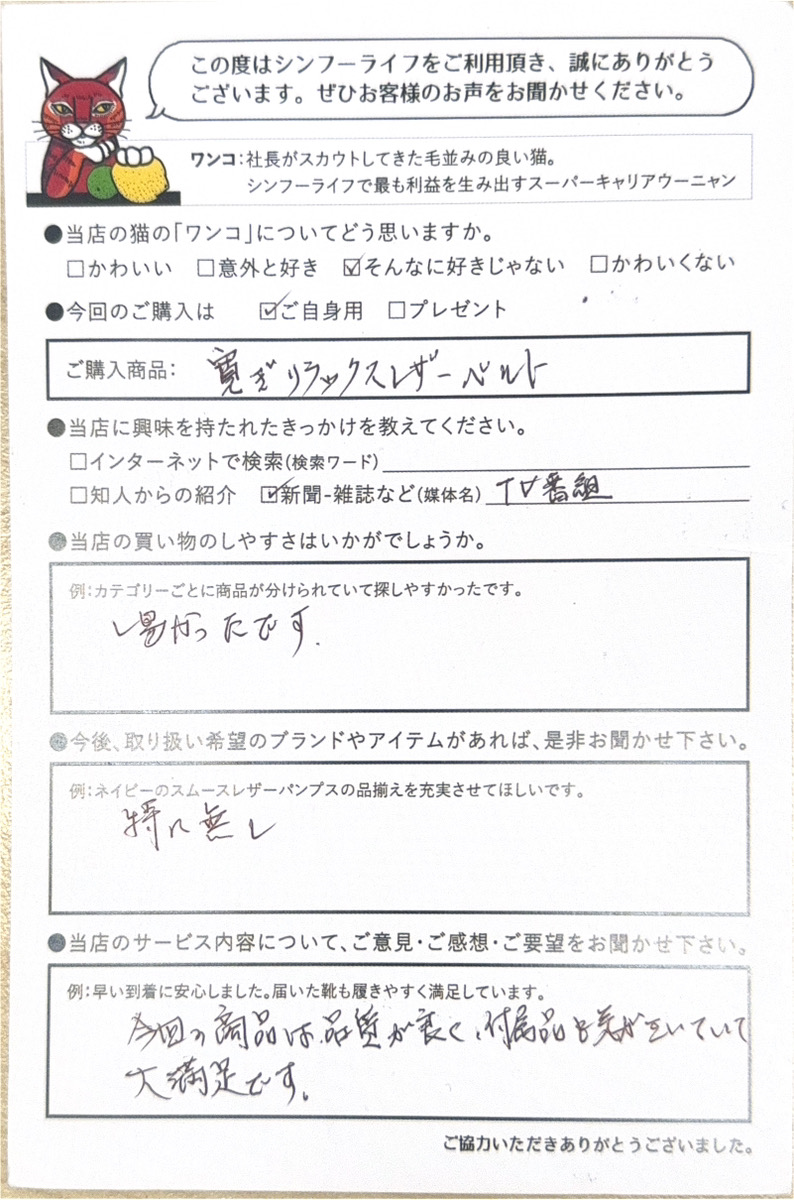 この度はシンフーライフをご利用頂き、誠にありがとう
ございます。ぜひお客様のお声をお聞かせください。
ワンコ：社長がスカウトしてきた毛並みの良い猫。
シンフーライフで最も利益を生み出すスーパーキャリアウーニャン
●当店の猫の「ワンコ」についてどう思いますか。
□かわいい □意外と好き ☑そんなに好きじゃない □かわいくない
●今回のご購入は ☑ご自身用 □プレゼント
ご購入商品： 寛ぎリラックスレザーベルト
●当店に興味を持たれたきっかけを教えてください。
□インターネットで検索(検索ワード)
□知人からの紹介 ☑新聞-雑誌など(媒体名) TV番組
●当店の買い物のしやすさはいかがでしょうか。
例：カテゴリーごとに商品が分けられていて探しやすかったです。
し易かったです.
●今後、取り扱い希望のブランドやアイテムがあれば、是非お聞かせ下さい。
例：ネイビーのスムースレザーパンプスの品揃えを充実させてほしいです。
特に無し
●当店のサービス内容について、ご意見・ご感想・ご要望をお聞かせ下さい。
例：早い到着に安心しました。届いた靴も履きやすく満足しています。
今回の商品は品質が良く、付属品も気が互いていて
大満足です。
ご協力いただきありがとうございました。